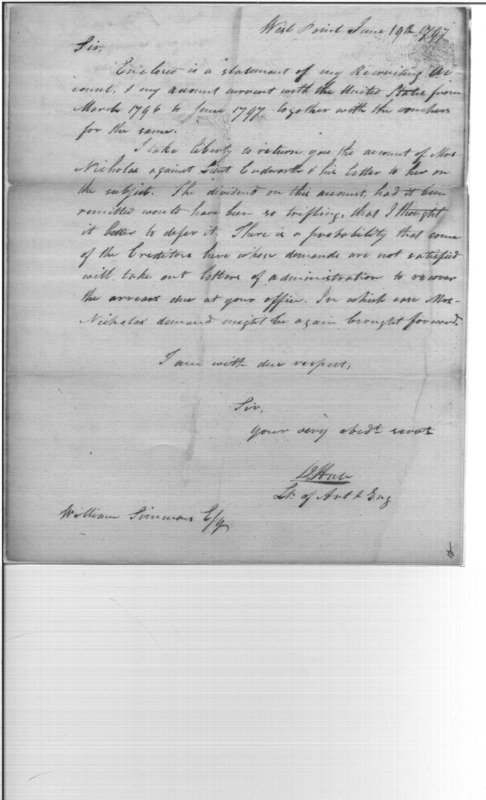 West Point June 19th 1797
Sir,
Enclosed is a statement of my Recruiting Ac
count, & my account current with the United States from
March 1796 to June 1797 together with the vouchers
for the same.
I take liberty to return you the account of Mrs
Nicholas against Lieut & his letter to her on
the subject. The dividend on this account, had it been
remitted would have been so trifling, that I thought
it better to defer it. There is a probability that some
of the Creditors here whose demands are not satisfied
will take out letters of administration to recover
the arrears due at your office. In which case Mrs
Nicholas' demand might be again brought forward.
I am with due respect,
Sir,
your very obedt servt
Lt. of Art & Eng
William Simmons Esq